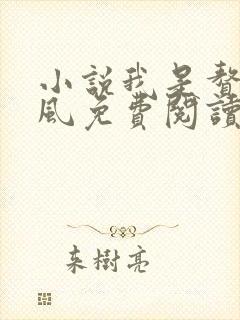 小說我是贅
風免費閱讀
来樹亮